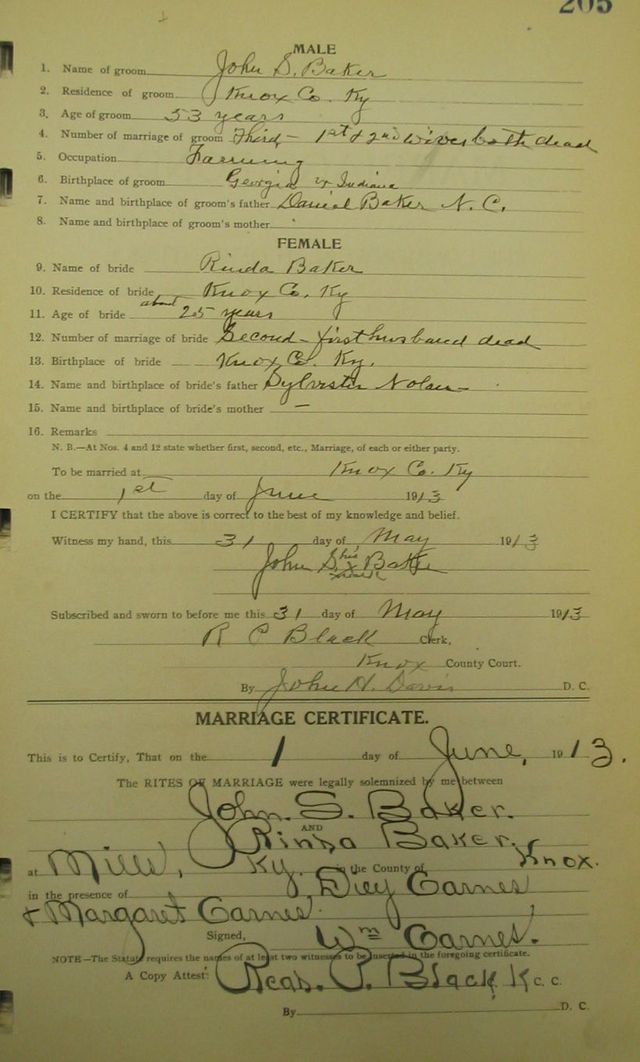 205
MALE
1. Name of groom John S. Baker
2. Residence of groom Knox Co. Ky
3. Age of groom 53 years
4. Number of marriage of groom Third – 1st & 2nd wives both dead
5. Occupation Farming
6. Birthplace of groom Georgia or Indiana
7. Name and birthplace of groom's father Daniel Baker N. C.
8. Name and birthplace of groom's mother
FEMALE
9. Name of bride Rinda Baker
10. Residence of bride Knox Co. Ky
11. Age of bride about 25 years
12. Number of marriage of bride Second – first husband dead
13. Birthplace of bride Knox Co. Ky.
14. Name and birthplace of bride's father Sylvester Nolan –
15. Name and birthplace of bride's mother –
16. Remarks
N. B.—At Nos. 4 and 12 state whether first, second, etc., Marriage, of each or either party.
To be married at Knox Co. Ky
on the 1st day of June 1913
I CERTIFY that the above is correct to the best of my knowledge and belief.
Witness my hand, this 31 day of May 1913
John S. his x mark Baker
Subscribed and sworn to before me this 31 day of May 1913
R C Black Clerk,
Knox County Court.
By John H. Davis D. C.
MARRIAGE CERTIFICATE.
This is to Certify, That on the 1 day of June, 1913.
The RITES OF MARRIAGE were legally solemnized by me between
John. S. Baker.
AND
Rinda Baker.
at Mills, Ky. in the County of Knox.
in the presence of Dey Carnes
& Margaret Carnes.
Signed, Wm Carnes.
NOTE—The Statute requires the names of at least two witnesses to be inserted in the foregoing certificate.
A Copy Attest: Black K C. C.
By D. C.